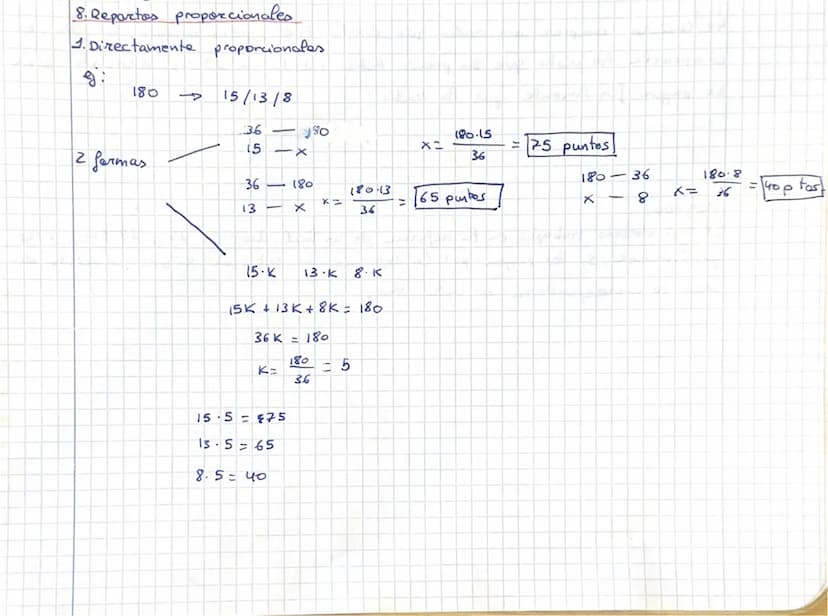 8. Repartos proporcionales
1. Directamente proporcionales
ej:
180 → 15/13/8
2 formas
36 — 180
15 — x
x = 180·15 / 36 = 75 puntos
36 — 180
13 — x
x = 180·13 / 36 = 65 puntos
180 — 36
x — 8
x = 180·8 / 36 = 40 ptos
15·K 13·K 8·K
15K + 13K + 8K = 180
36K = 180
K = 180 / 36 = 5
15·5 = 75
13·5 = 65
8·5 = 40